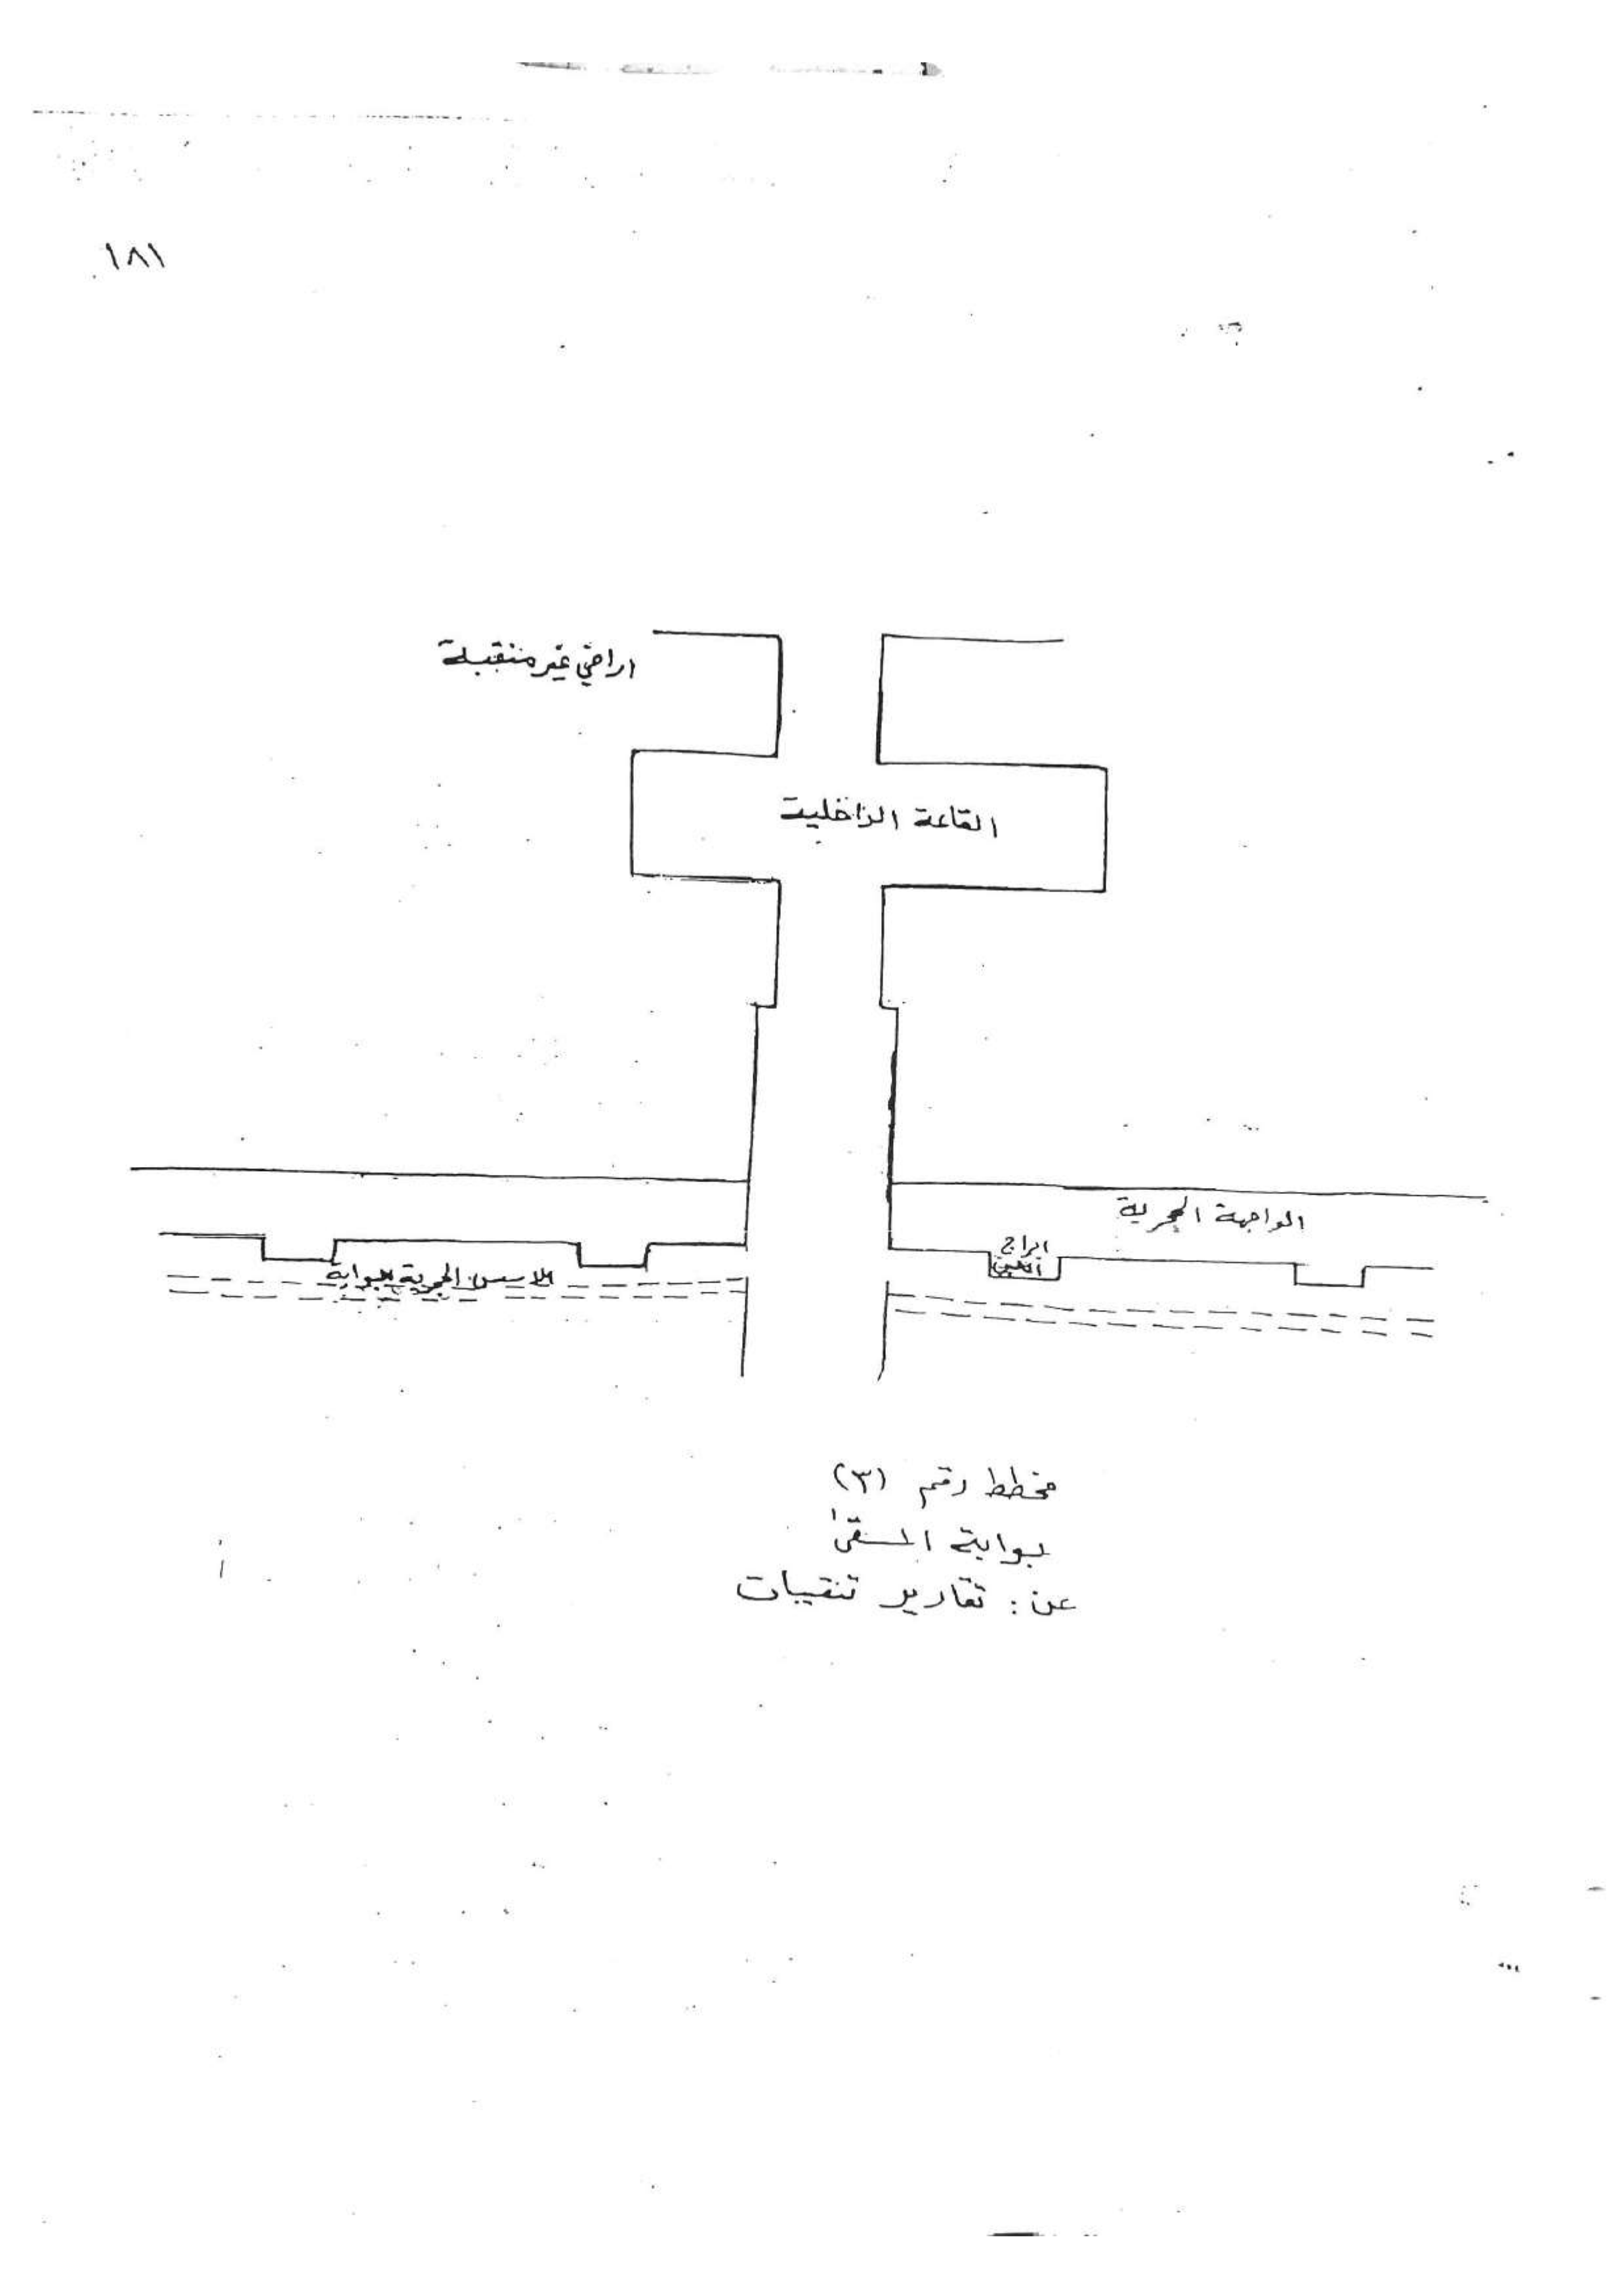 ١٨١
اراضي غير منقبة
القاعة الداخلية
الواجهة الحجرية
ابراج
اللبن
الاسس الحجرية للبوابة
مخطط رقم (٣)
بوابة المسقى
عن : تقارير تنقيبات